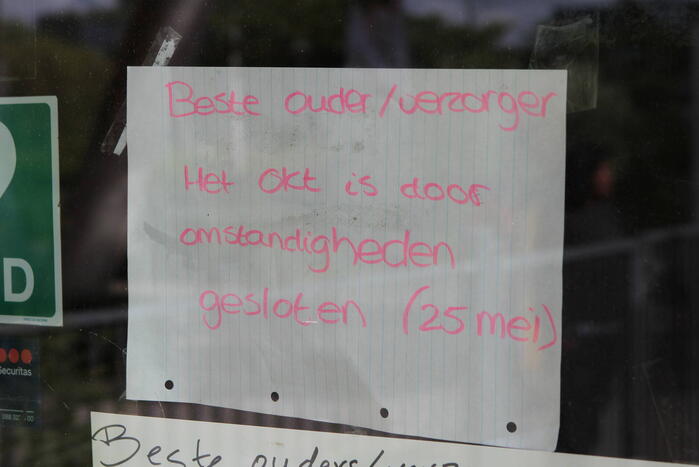 Beste ouder/verzorger
Het okt is door
omstandigheden
gesloten (25 mei)
D
Securitas
Beste ouders/